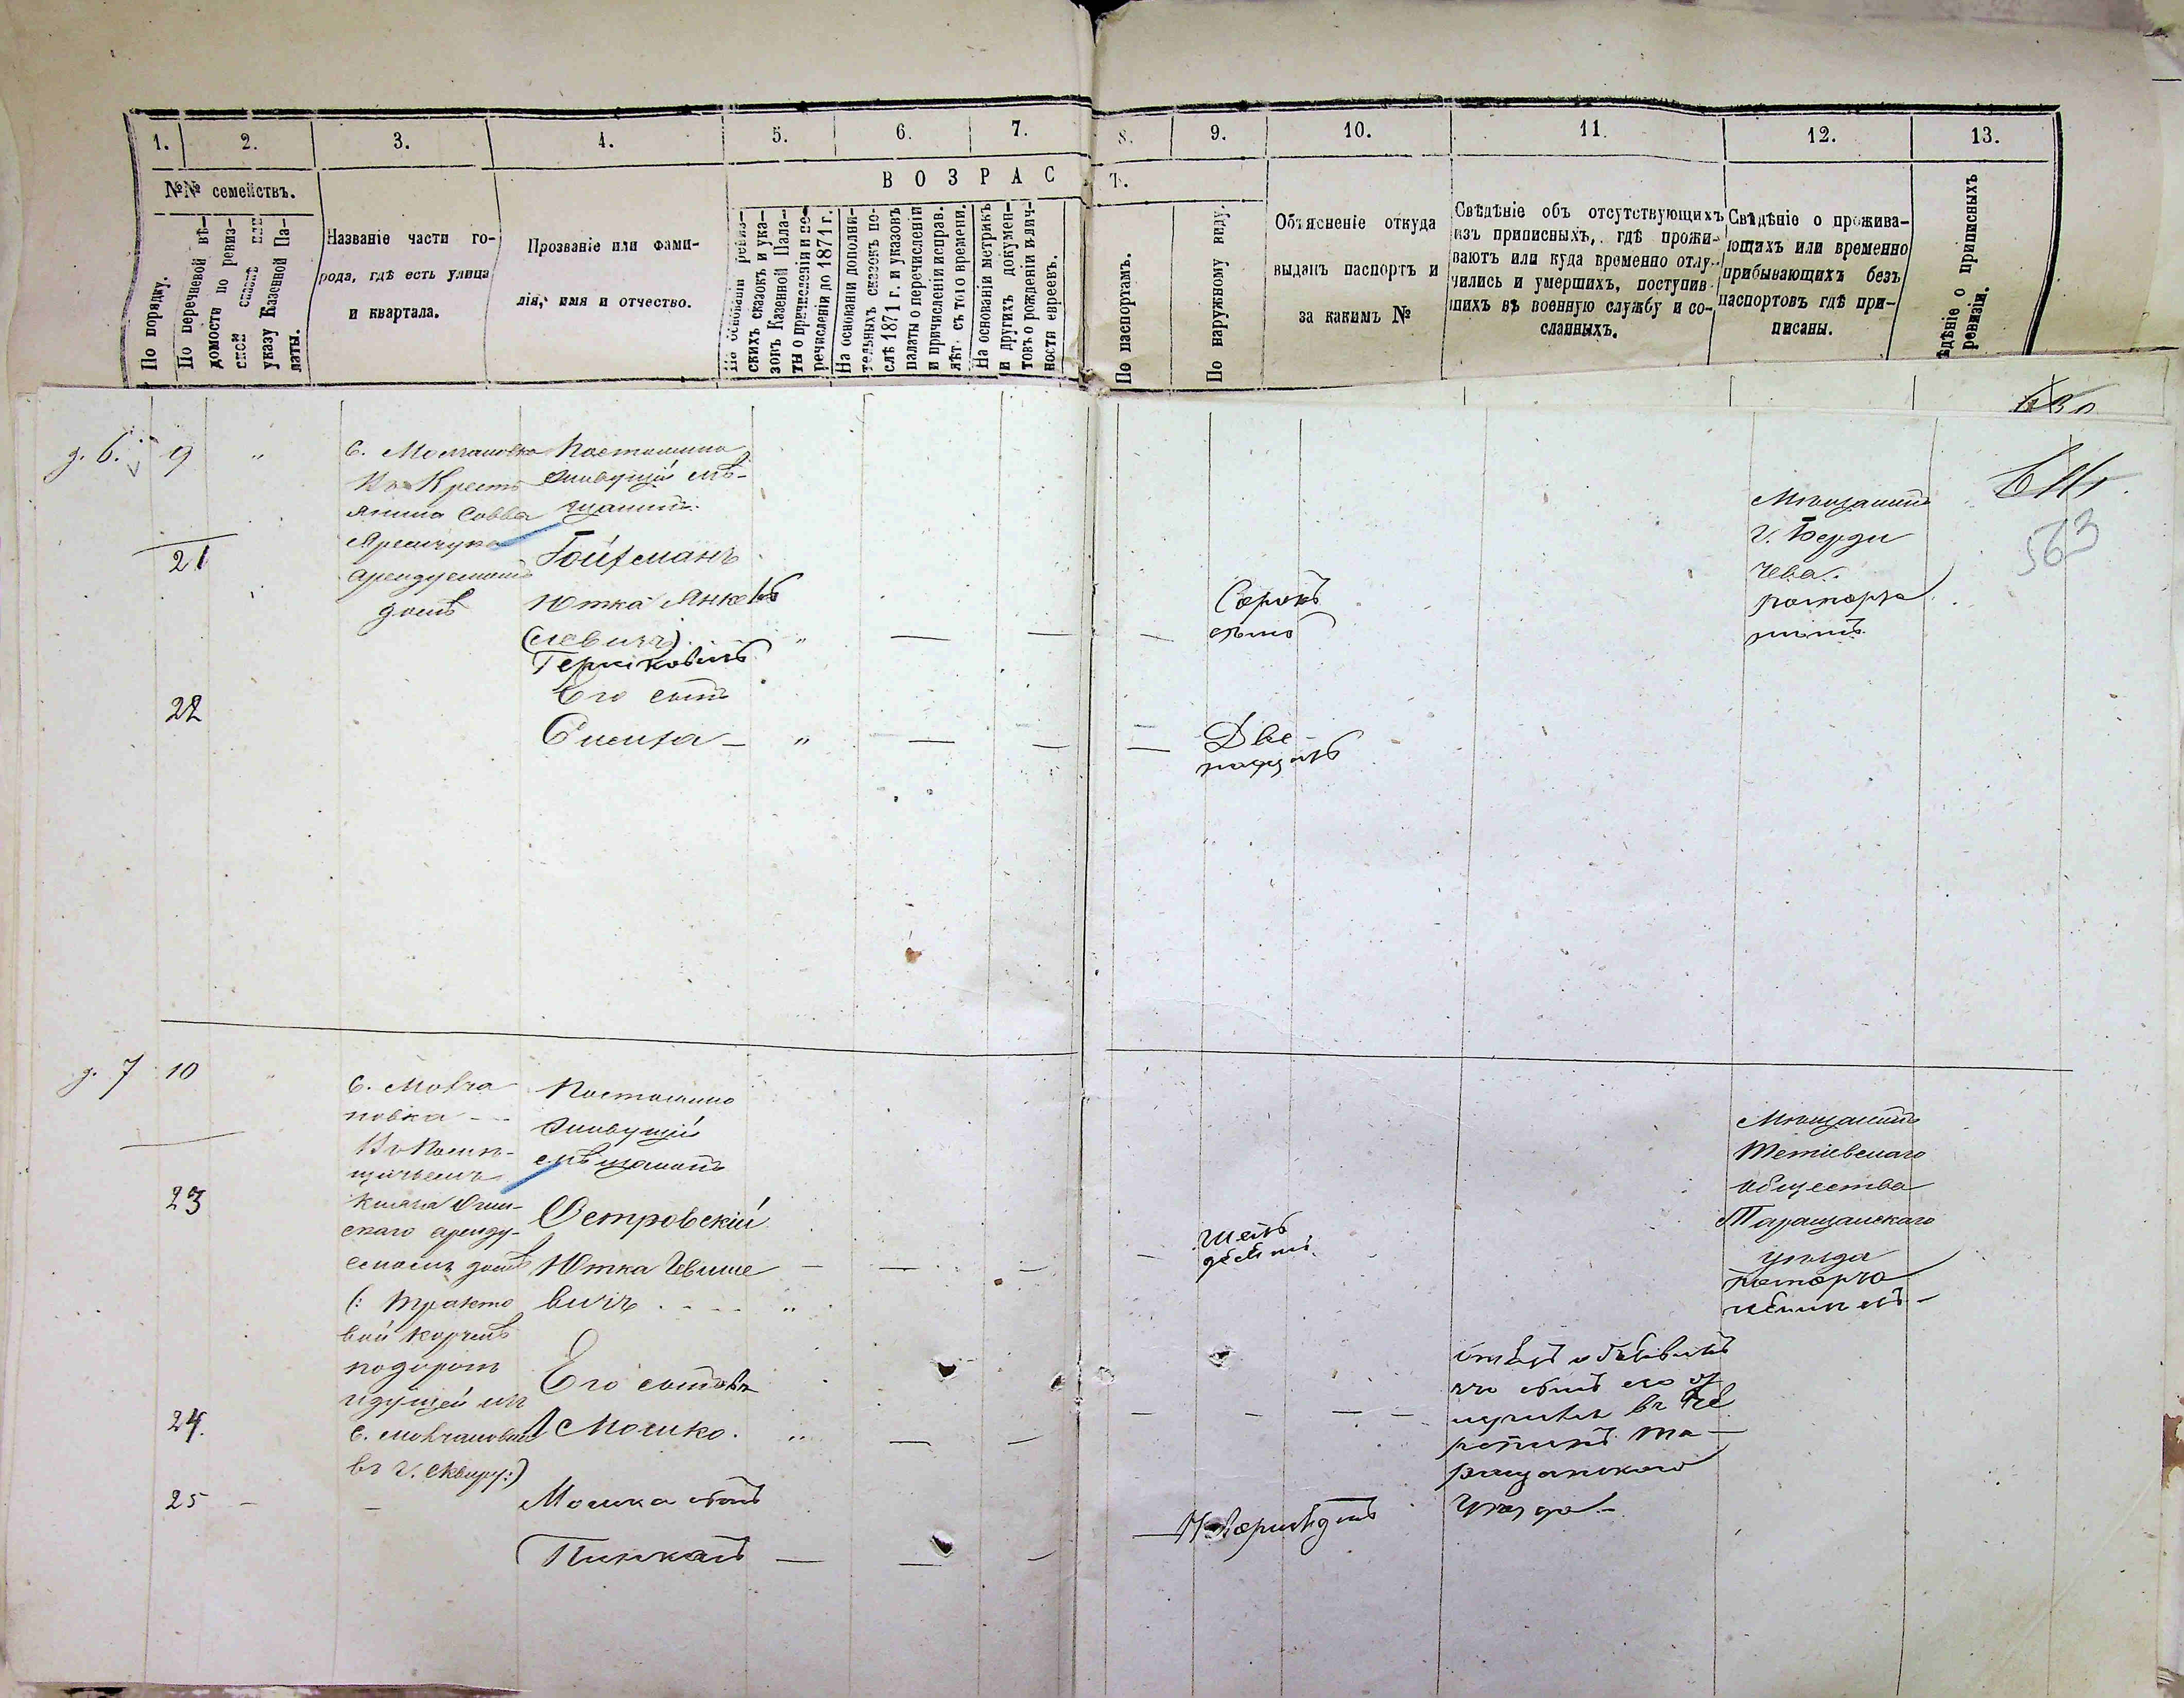 1.
2.
3.
4.
5.
6.
7.
8.
9.
10.
11.
12.
13.
№№ семействъ.
По порядку.
По перечневой вѣ-
домости по ревиз-
ской сказкѣ или
указу Казенной Па-
латы.
Названіе части го-
рода, гдѣ есть улица
и квартала.
Прозваніе или фами-
лія, имя и отчество.
ВОЗРАС
Т.
На основаніи ревиз-
скихъ сказокъ и ука-
зовъ Казенной Пала-
ты о причисленіи и пе-
речисленіи до 1871 г.
На основаніи дополни-
тельныхъ сказокъ по-
слѣ 1871 г. и указовъ
палаты о перечисленіи
и причисленіи исправ.
лѣт. съ того времени.
На основаніи метрикъ
и другихъ докумен-
товъ о рожденіи и лич-
ности евреевъ.
По паспортамъ.
По наружному виду.
Объясненіе откуда
выданъ паспортъ и
за какимъ №
Свѣдѣніе объ отсутствующихъ
изъ приписныхъ, гдѣ прожи-
ваютъ или куда временно отлу-
чились и умершихъ, поступив-
шихъ въ военную службу и со-
сланныхъ.
Свѣдѣніе о прожива-
ющихъ или временно
прибывающихъ безъ
паспортовъ гдѣ при-
писаны.
ѣдѣніе о приписныхъ
ревизіи.
563
д. 6. 9 "
С. Молчановка
Въ Кресть
янина Савва
Яремчука
арендуемомъ
домѣ
Постоянно
живущій мѣ-
щанинъ
21
Гойхманъ
Ютка Янке
(левичъ)
Гершковичъ
Сорокъ
семь
Мѣщанинъ
г. Берди
чева.
22
Его сынъ
Симха — "
Две-
надцать
д. 7 10
С. Молча
новка
Въ Помѣ-
щичьемъ
Князя
скаго аренду-
емомъ домѣ
(: Тракто
вой корчмѣ
подорогѣ
идущей изъ
с. Молчановки
въ г. Сквиру:)
Постоянно
живущій
мѣщанинъ
23
Островскій
Ютка
вичъ
Шесть
десятъ
Мѣщанинъ
Тетіевскаго
общества
Таращанскаго
уѣзда
Его сыновья
24.
1 Мошко. "
Отецъ объявилъ
что сынъ его
въ
Та-
ращанского
Уѣзда
25 -
Мошка сынъ
Пинкасъ —